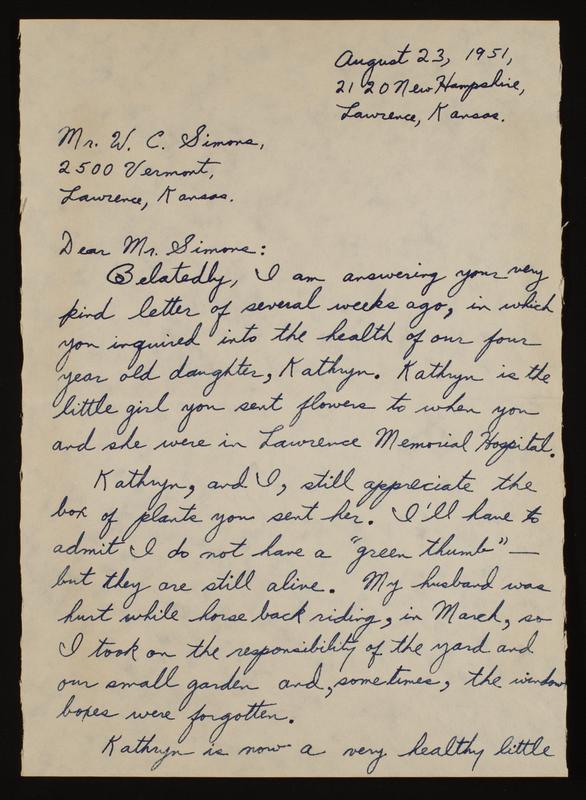 August 23, 1951,
2120 New Hampshire,
Lawrence, Kansas.
Mr. W. C. Simons,
2500 Vermont,
Lawrence, Kansas.
Dear Mr. Simons:
Belatedly, I am answering your very
kind letter of several weeks ago, in which
you inquired into the health of our four
year old daughter, Kathryn. Kathryn is the
little girl you sent flowers to when you
and she were in Lawrence Memorial Hospital.
Kathryn, and I, still appreciate the
box of plants you sent her. I'll have to
admit I do not have a "green thumb" —
but they are still alive. My husband was
hurt while horse back riding, in March, so
I took on the responsibility of the yard and
our small garden and, sometimes, the window
boxes were forgotten.
Kathryn is now a very healthy little